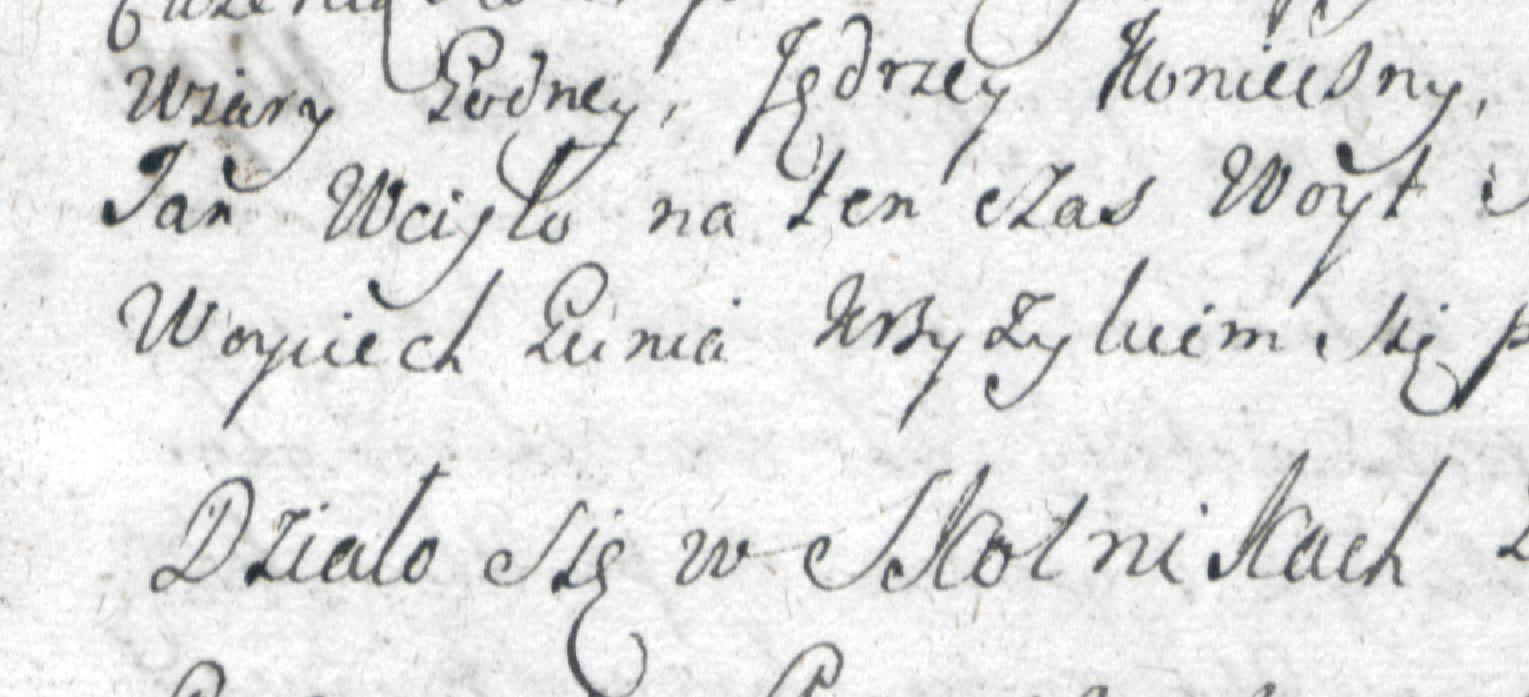 Wiary Godney, Jędrzey Konieczny,
Jan Wcisło na ten czas Woyt
Woyciech Gunia Krzyżykiem się
Działo się w Skotnikach